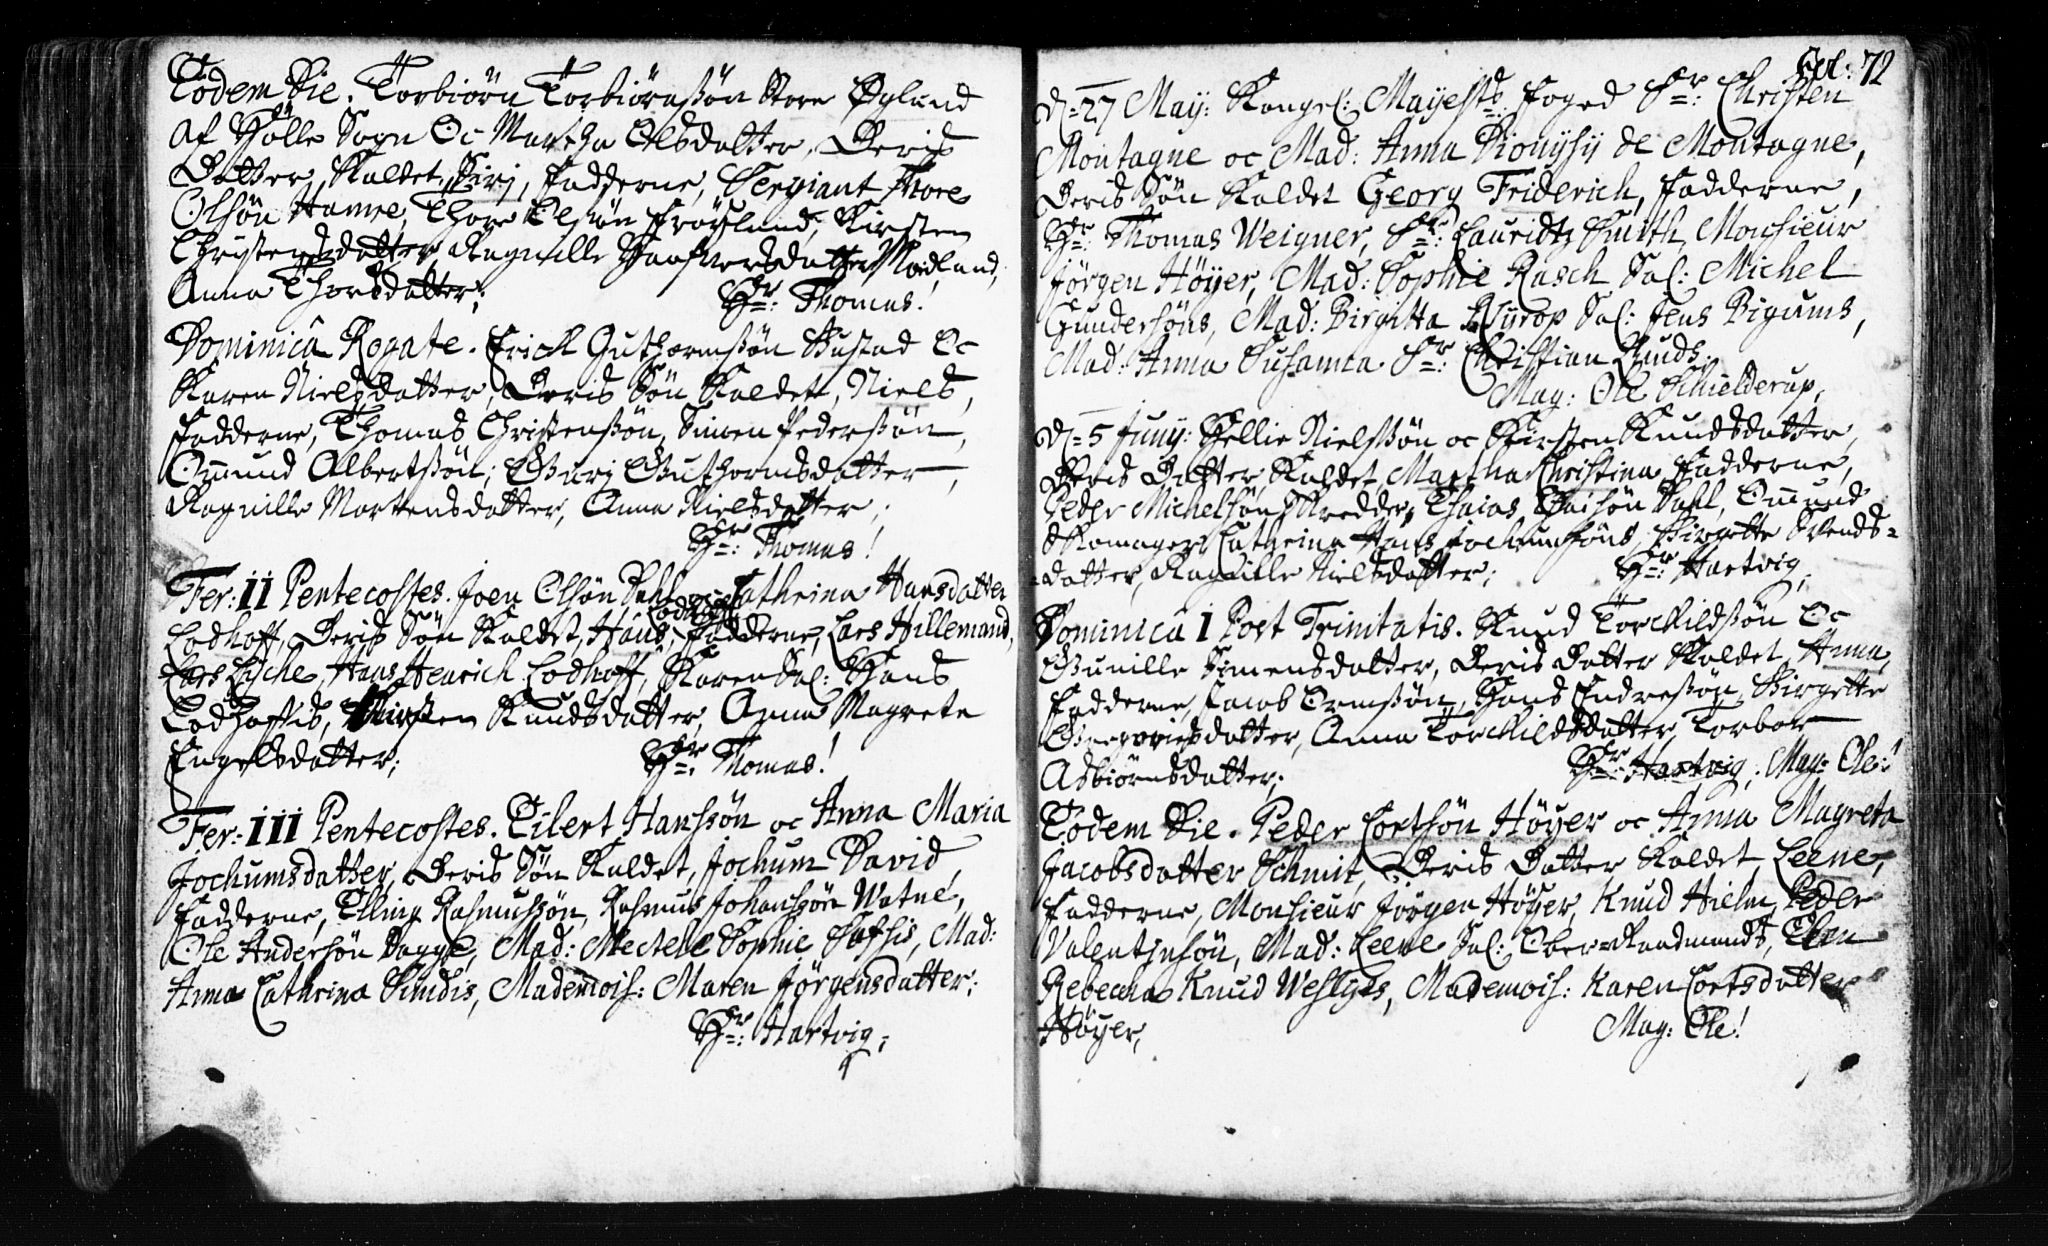 Eodem Die. Torbiörn Torbiörnssön Store Øgland
af Hölle Sogn Oc Martha Olsdatter, Deris
Datter Kaldet, Sirj, Fadderne, Sergiant Thore
Olsön Hamre, Thore Olsön Fröyland, Kirsten
Christensdatter, Ragnille Haafversdatter Madland,
Anna Thorsdatter;
Hr: Thomas!
Dominicâ Rogate. Erich Guthormssön Bustad Oc
Karen Nielsdatter, Deris Sön Kaldet, Niels,
Fadderne, Thomas Christenssön, Simen Pederssön,
Omund Albertssön, Gurj Guthormsdatter,
Ragnille Mortensdatter, Anna Nielsdatter,
Hr: Thomas!
Fer: II Pentecostes. Joen Olsön Dahl oc Cathrina Hansdatter
Lodhoff, Deris Sön Kaldet, Hans Lodhoff, Fadderne, Lars Hillemand,
Lars Lyche, Hans Henrich Lodhoff, Karen Sal: Hans
Lodhoffs, Kirsten Knudsdatter, Anna Magrete
Engelsdatter;
Hr: Thomas!
Fer: III Pentecostes. Eilert Hanssön oc Anna Maria
Jochumsdatter, Deris Sön Kaldet, Jochum David,
Fadderne, Elling Rasmussön, Rasmus Johanssön Watne,
Ole Andersön Bagge, Mad: Mectele Sophie, Mad:
Anna Cathrina, Mademois: Maren Jörgensdatter;
Hr: Hartvig;
Fol: 72
D= 27 May: Kongel: Mayests Foged Sr: Christen
Montagne oc Mad: Anna Dionysij de Montagne,
Deris Sön Kaldet Georg Friderich, Fadderne,
Hr: Thomas Weigner, Sr: Lauridtz Smith, Monsieur
Jörgen Höyer, Mad: Sophie Rasch Sal: Michel
Gundersöns, Mad: Birgitta Sal: Jens Bigums,
Mad: Anna Susanna Sr: Christian Ruuds.
Mag: Ole Schielderup.
D= 5 Juny: Hellie Nielssön oc Kirsten Knudsdatter,
Deris Datter Kaldet, Martha Christina, Fadderne,
Peder Michelsön Skredder, Esaias Esaisön Dahl, Omund
Skomager, Cathrina Hans Jochumsöns, Birgette Svends=
=datter, Ragnille Nielsdatter;
Hr: Hartvig,
Dominica I Post Trinitatis. Knud Torchildssön Oc
Gunille Simensdatter, Deris Datter Kaldet, Anna,
Fadderne, Jacob Ormssön, Hans Endressön, Birgette
Gregoriisdatter, Anna Torchildsdatter, Torbor
Asbiörnsdatter;
Hr: Hartvig; Mag: Ole!
Eodem Die. Peder Cortsön Höyer oc Anna Magreta
Jacobsdatter Schmit, Deris Datter Kaldet, Leene,
Fadderne, Monsieur Jörgen Höyer, Knud Hielm, Peder
Valentinsön, Mad: Leene Sal: Ober=Raadmands, Ellen
Rebecca Knud Weslyes, Mademois: Karen Cortsdatter
Höyer,
Mag: Ole!